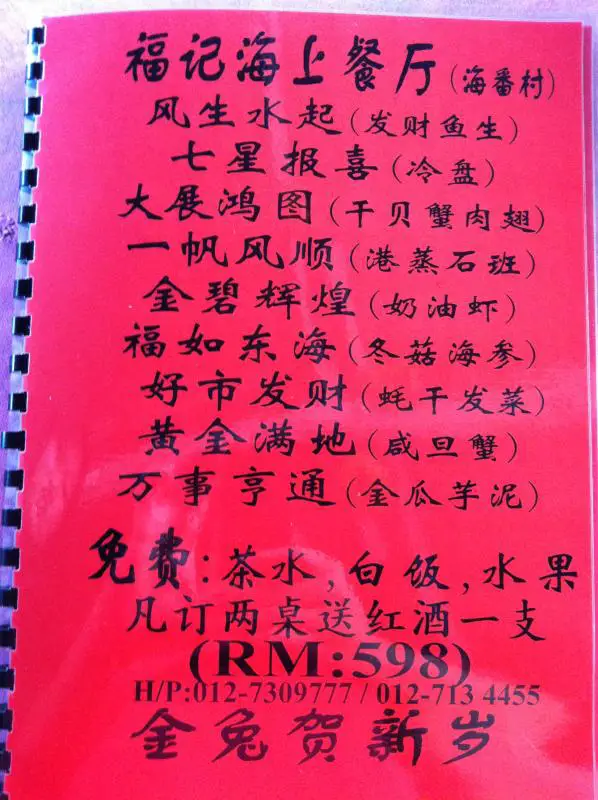 福记海上餐厅(海番村)
风生水起(发财鱼生)
七星报喜(冷盘)
大展鸿图(干贝蟹肉翅)
一帆风顺(港蒸石班)
金碧辉煌(奶油虾)
福如东海(冬菇海参)
好市发财(蚝干发菜)
黄金满地(咸旦蟹)
万事亨通(金瓜芋泥)
免费:茶水,白饭,水果
凡订两桌送红酒一支
(RM:598)
H/P:012-7309777 / 012-713 4455
金兔贺新岁